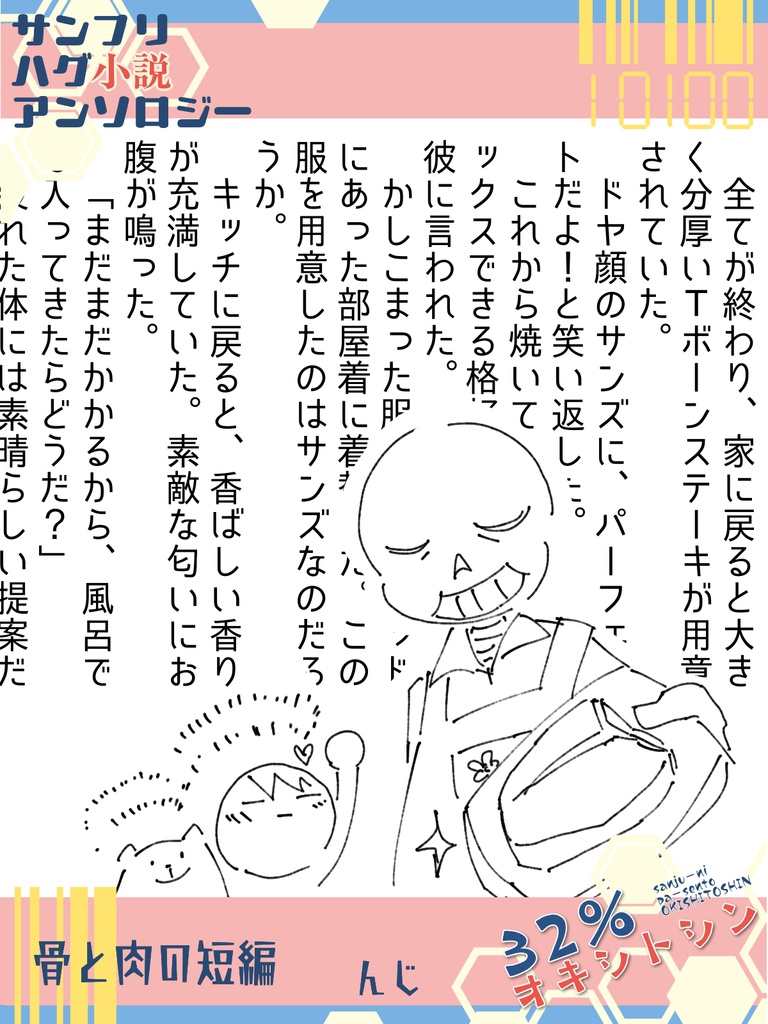 サンフリ
ハグ小説
アンソロジー
10100
全てが終わり、家に戻ると大き
く分厚いTボーンステーキが用意
されていた。
ドヤ顔のサンズに、パーフェ
トだよ！と笑い返した。
これから焼いて
ックスできる格
彼に言われた。
かしこまった服
にあった部屋着に着 た。この
服を用意したのはサンズなのだろ
うか。
キッチに戻ると、香ばしい香り
が充満していた。素敵な匂いにお
腹が鳴った。
「まだまだかかるから、風呂で
入ってきたらどうだ？」
れた体には素晴らしい提案だ
骨と肉の短編
んじ
32%
オキシトシン
sanju-ni
pa-sento
OKISHITOSHIN